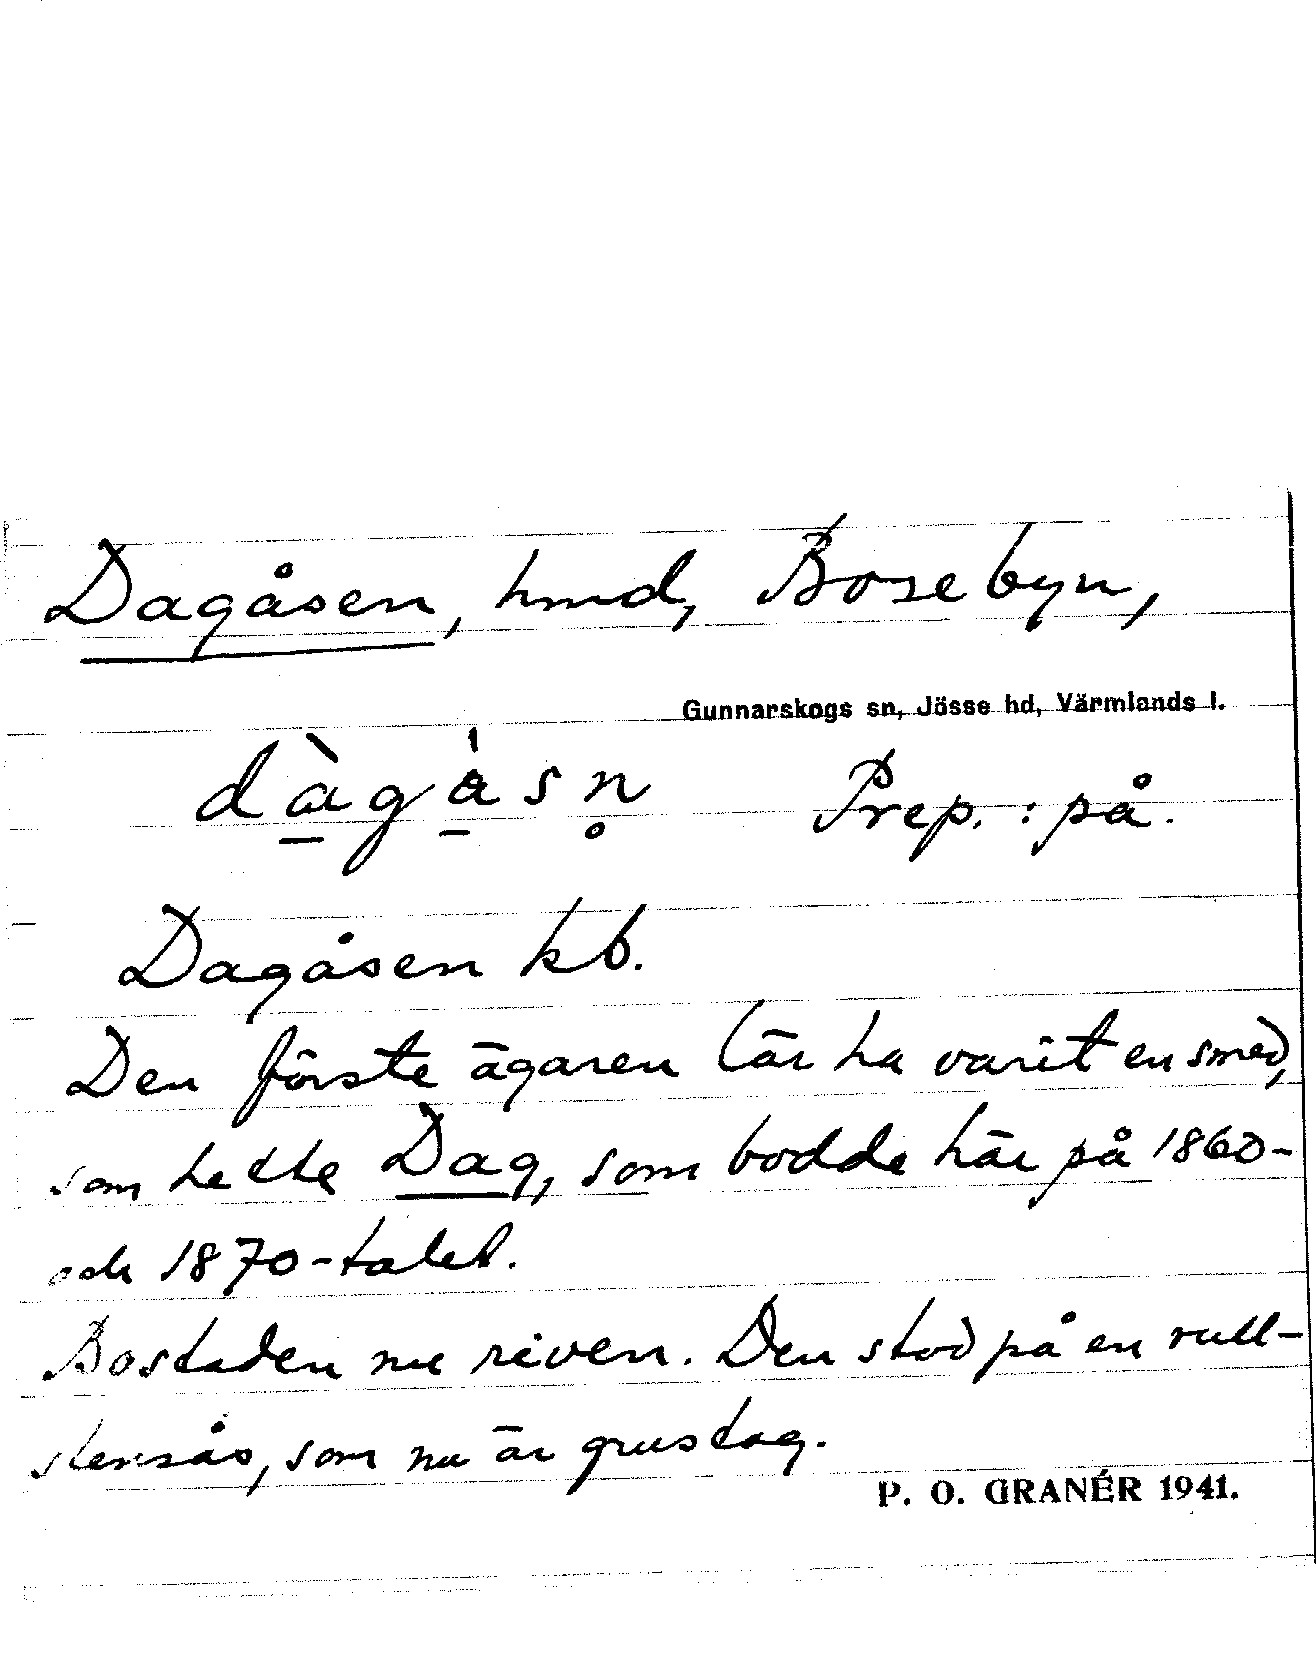 Dagåsen, hmd, Bosebyn,
Gunnarskogs sn, Jösse hd, Värmlands l.
dà̱gå̱̀sn̥ Prep.: på.
Dagåsen kb.
Den förste ägaren lär ha varit en smed,
som hette Dag, som bodde här på 1860-
och 1870-talet.
Bostaden nu riven. Den stod på en rull-
stensås, som nu är grustag.
P. O. GRANÉR 1941.